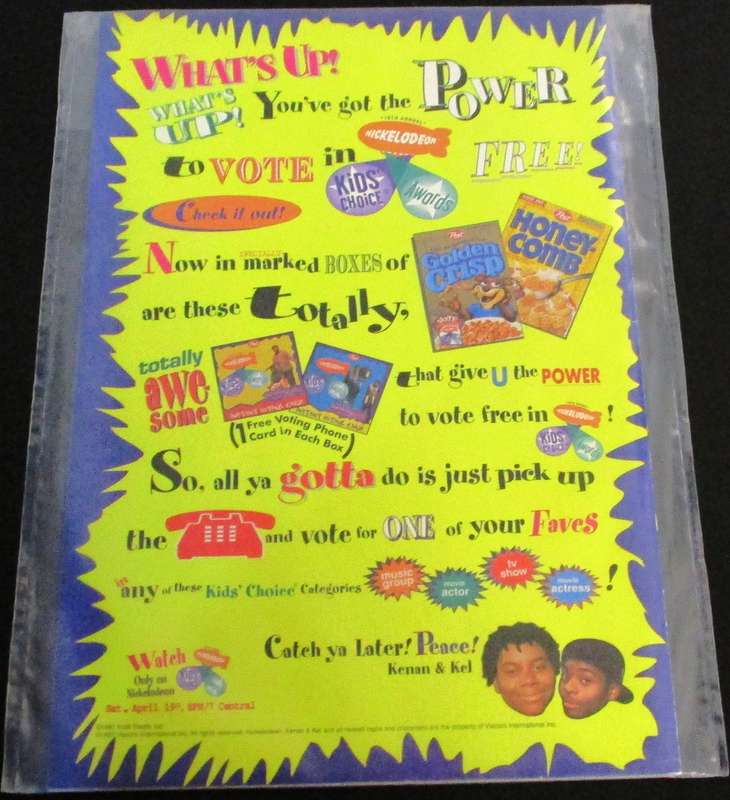 WHAT'S UP!
WHAT'S UP! You've got the POWER
to VOTE in NICKELODEON KIDS' CHOICE Awards FREE!
Check it out!
Now in SPECIALLY marked BOXES of Post Golden Crisp Post HONEY-COMB
are these totally,
totally awe some
(1 Free Voting Phone Card in Each Box)
that give U the POWER
to vote free in NICKELODEON KIDS' CHOICE Awards !
So, all ya gotta do is just pick up
the and vote for ONE of your Faves
in any of these Kids' Choice Categories music group movie actor tv show movie actress !
Catch ya Later! Peace!
Kenan & Kel
Watch
Only on
Nickelodeon
Sat. April 19th, 8PM/7 Central